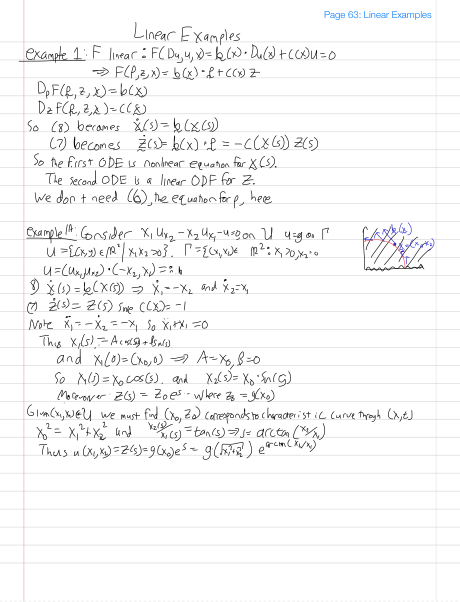 Page 63: Linear Examples
Linear Examples
Example 1: F linear: F(Du,u,x)=b(x)·Du(x)+c(x)u=0
⇒ F(p,z,x)=b(x)·p+c(x)z
DpF(p,z,x)=b(x)
DzF(p,z,x)=c(x)
So (8) becomes ẋ(s)=b(x(s))
(7) becomes ż(s)=b(x)·p=-c(x(s))z(s)
So the first ODE is nonlinear equation for x(s).
The second ODE is a linear ODF for z.
We don't need (6), the equation for p, here
Example 1A: Consider x₁ux₂-x₂ux₁-u=0 on U u=g on Γ
U={(x,y)∈ℝ²|x₁x₂>0}. Γ={(x₁,x₂)∈ ℝ²: x₁>0,x₂=0
b(x)
u=(ux₁,ux₂)·(-x₂,x₁)=: b
8) ẋ(s)=b(x(s)) ⇒ ẋ₁=-x₂ and ẋ₂=x₁
(7) ż(s)=z(s) since c(x)=-1
Note ẍ₁=-ẋ₂=-x₁ so ẍ₁+x₁=0
Thus x₁(s)=A cos(s)+B sin(s)
and x₁(0)=(x₀,0) ⇒ A=x₀, B=0
So x₁(s)=x₀cos(s). and x₂(s)=x₀·sin(s)
Moreover z(s)=z₀eˢ where z₀=g(x₀)
Given (x₁,x₂)∈U we must find (x₀,z₀) corresponds to characteristic curve through (x,z)
x₀²=x₁²+x₂² and x₂(s)/x₁(s)=tan(s)⇒s=arctan(x₂/x₁)
Thus u(x₁,x₂)=z(s)=g(x₀)eˢ=g(√x₁²+x₂²) e^arctan(x₂/x₁)